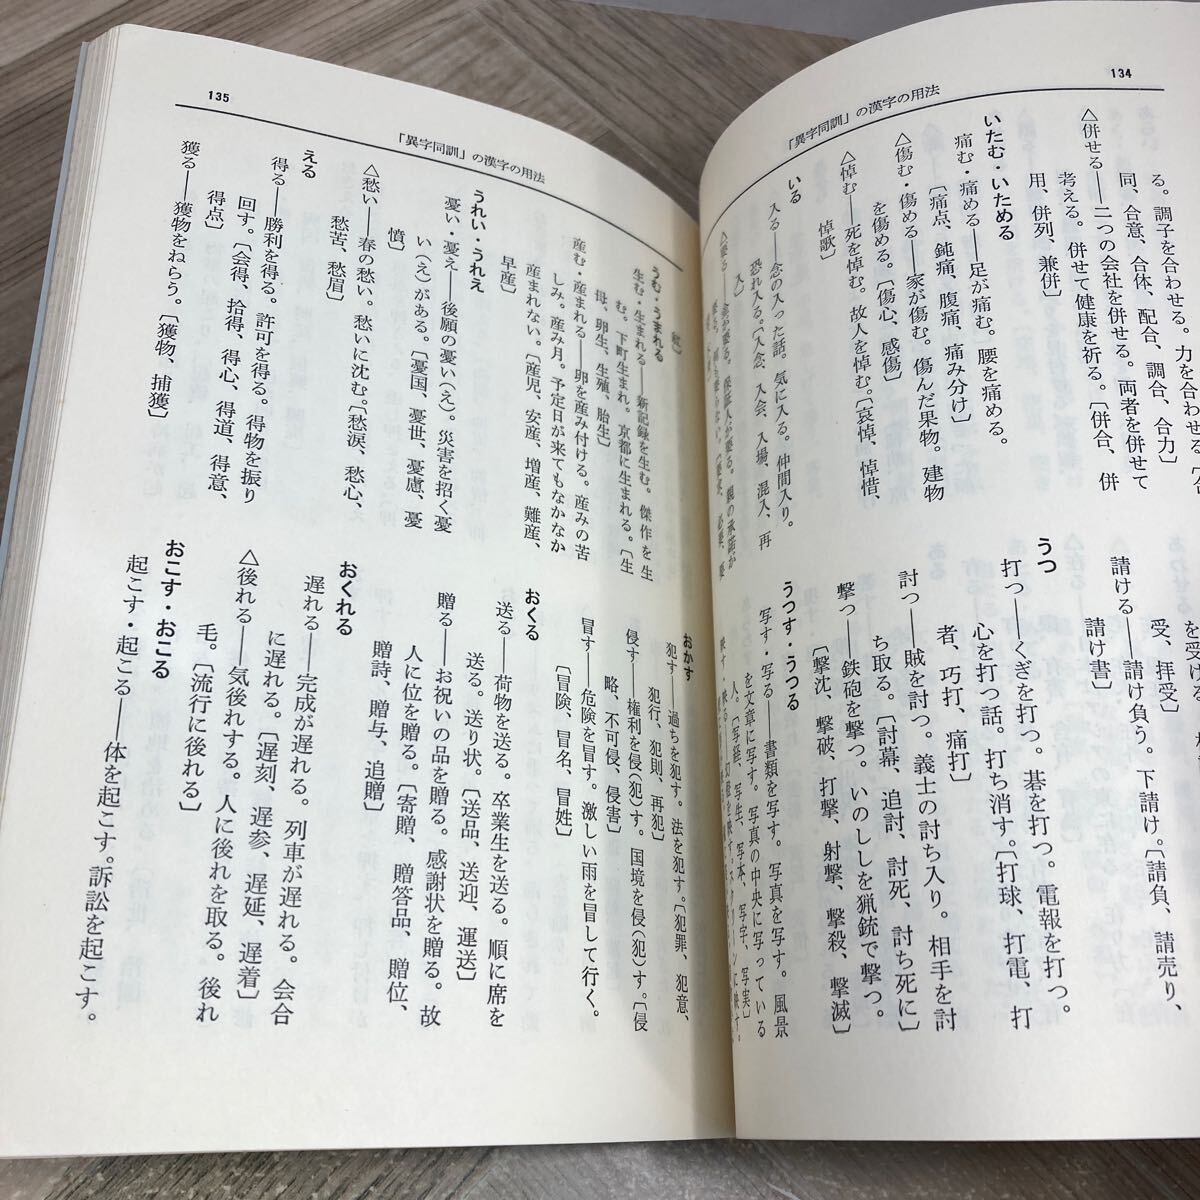 134
「異字同訓」の漢字の用法
る。調子を合わせる。力を合わせる。〔合
同、合意、合体、配合、調合、合力〕
△併せる――二つの会社を併せる。両者を併せて
考える。併せて健康を祈る。〔併合、併
用、併列、兼併〕
いたむ・いためる
痛む・痛める――足が痛む。腰を痛める。
〔痛点、鈍痛、腹痛、痛み分け〕
傷む・傷める――家が傷む。傷んだ果物。建物
を傷める。〔傷心、感傷〕
△悼む――死を悼む。故人を悼む。〔哀悼、悼惜、
悼歌〕
いる
入る――念の入った話。気に入る。仲間入り。
恐れ入る。〔入念、入会、入場、混入、再
入〕
を受ける
受、拝受〕
請ける――請け負う。下請け。〔請負、請売り、
請け書〕
うつ
打つ――くぎを打つ。碁を打つ。電報を打つ。
心を打つ話。打ち消す。〔打球、打電、打
者、巧打、痛打〕
討つ――賊を討つ。義士の討ち入り。相手を討
ち取る。〔討幕、追討、討死、討ち死に〕
撃つ――鉄砲を撃つ。いのししを猟銃で撃つ。
〔撃沈、撃破、打撃、射撃、撃殺、撃滅〕
うつす・うつる
写す・写る――書類を写す。写真を写す。風景
を文章に写す。写真の中央に写っている
人。〔写経、写生、写本、写字、写実〕
135
「異字同訓」の漢字の用法
うむ・うまれる
生む・生まれる――新記録を生む。傑作を生
む。下町生まれ。京都に生まれる。〔生
母、卵生、生殖、胎生〕
産む・産まれる――卵を産み付ける。産みの苦
しみ。産み月。予定日が来てもなかなか
産まれない。〔産児、安産、増産、難産、
早産〕
うれい・うれえ
憂い・憂え――後願の憂い(え)。災害を招く憂
い(え)がある。〔憂国、憂世、憂慮、憂
憤〕
△愁い――春の愁い。愁いに沈む。〔愁涙、愁心、
愁苦、愁眉〕
える
得る――勝利を得る。許可を得る。得物を振り
回す。〔会得、拾得、得心、得道、得意、
得点〕
獲る――獲物をねらう。〔獲物、捕獲〕
おかす
犯す――過ちを犯す。法を犯す。〔犯罪、犯意、
犯行、犯則、再犯〕
侵す――権利を侵(犯)す。国境を侵(犯)す。〔侵
略、不可侵、侵害〕
冒す――危険を冒す。激しい雨を冒して行く。
〔冒険、冒名、冒姓〕
おくる
送る――荷物を送る。卒業生を送る。順に席を
送る。送り状。〔送品、送迎、運送〕
贈る――お祝いの品を贈る。感謝状を贈る。故
人に位を贈る。〔寄贈、贈答品、贈位、
贈詩、贈与、追贈〕
おくれる
遅れる――完成が遅れる。列車が遅れる。会合
に遅れる。〔遅刻、遅参、遅延、遅着〕
△後れる――気後れする。人に後れを取る。後れ
毛。〔流行に後れる〕
おこす・おこる
起こす・起こる――体を起こす。訴訟を起こす。